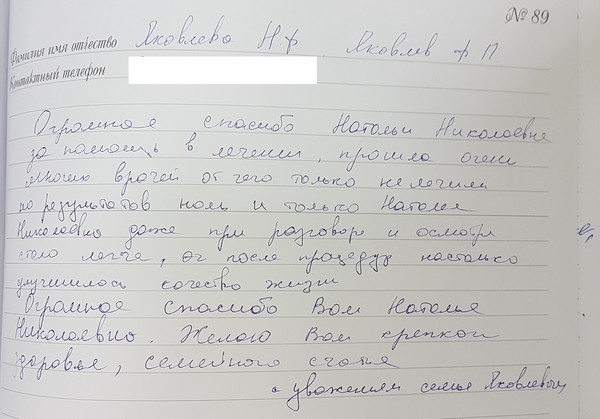 № 89
Фамилия имя отчество Яковлева Н.Ф. Яковлев Ф П
Контактный телефон
Огромное спасибо Натальи Николаевне
за помощь в лечении, прошла очень
многих врачей от чего только не лечили
но результатов ноль и только Наталья
Николаевна даже при разговоре и осмотре
стало легче, от после процедур настолько
улучшилось качество жизни
Огромное спасибо Вам Наталья
Николаевна. Желаю Вам крепкого
здоровья, семейного счастья
с уважением семья Яковлевых